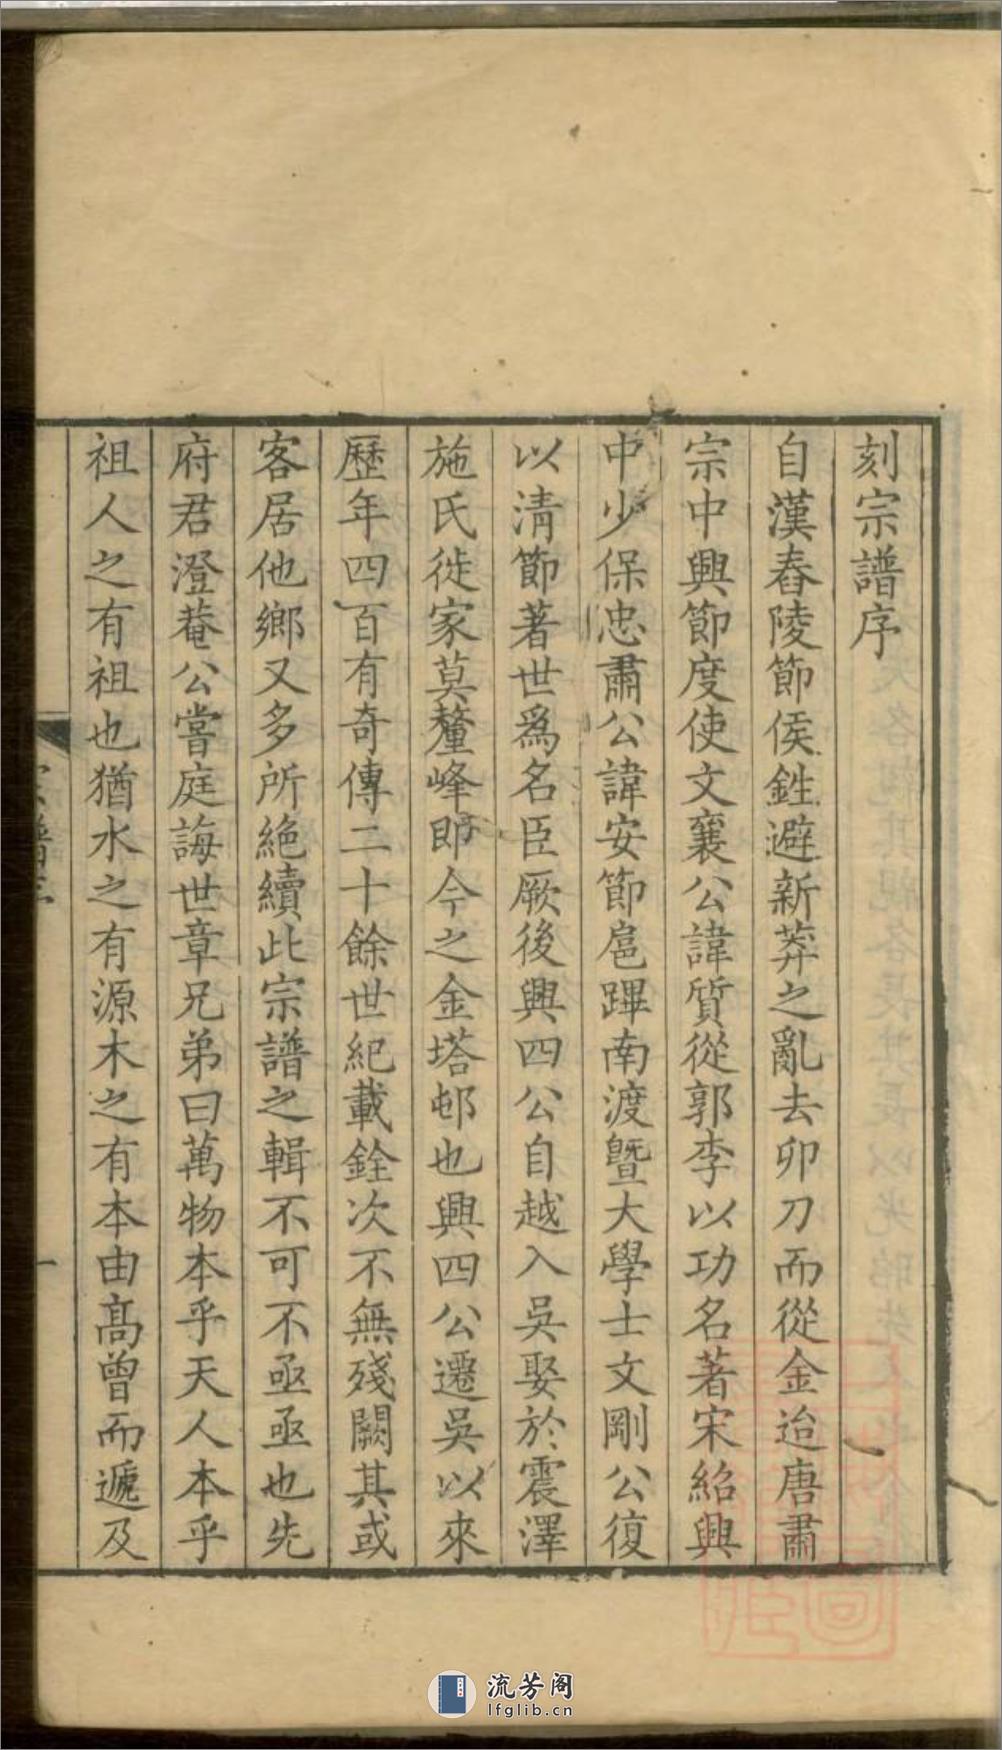 刻宗譜序
自漢舂陵節侯鉎避新莽之亂去卯刀而從金迨唐肅
宗中興節度使文襄公諱質從郭李以功名著宋紹興
中少保忠肅公諱安節扈蹕南渡暨大學士文剛公復
以清節著世爲名臣厥後興四公自越入吳娶於震澤
施氏徙家莫釐峰即今之金塔邨也興四公遷吳以來
歷年四百有奇傳二十餘世紀載銓次不無殘闕其或
客居他鄉又多所絶續此宗譜之輯不可不亟亟也先
府君澄菴公嘗庭誨世章兄弟曰萬物本乎天人本乎
祖人之有祖也猶水之有源木之有本由髙曾而遞及
宗譜序
一
流芳阁
lfglib.cn